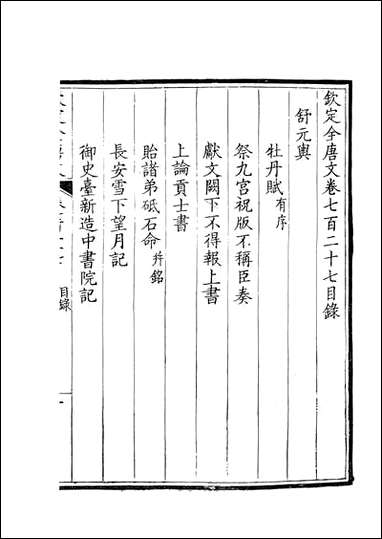 欽定全唐文卷七百二十七目錄
舒元輿
牡丹賦有序
祭九宮祝版不稱臣奏
獻文闕下不得報上書
上論貢士書
貽諸弟砥石命并銘
長安雪下望月記
御史臺新造中書院記
目錄
一